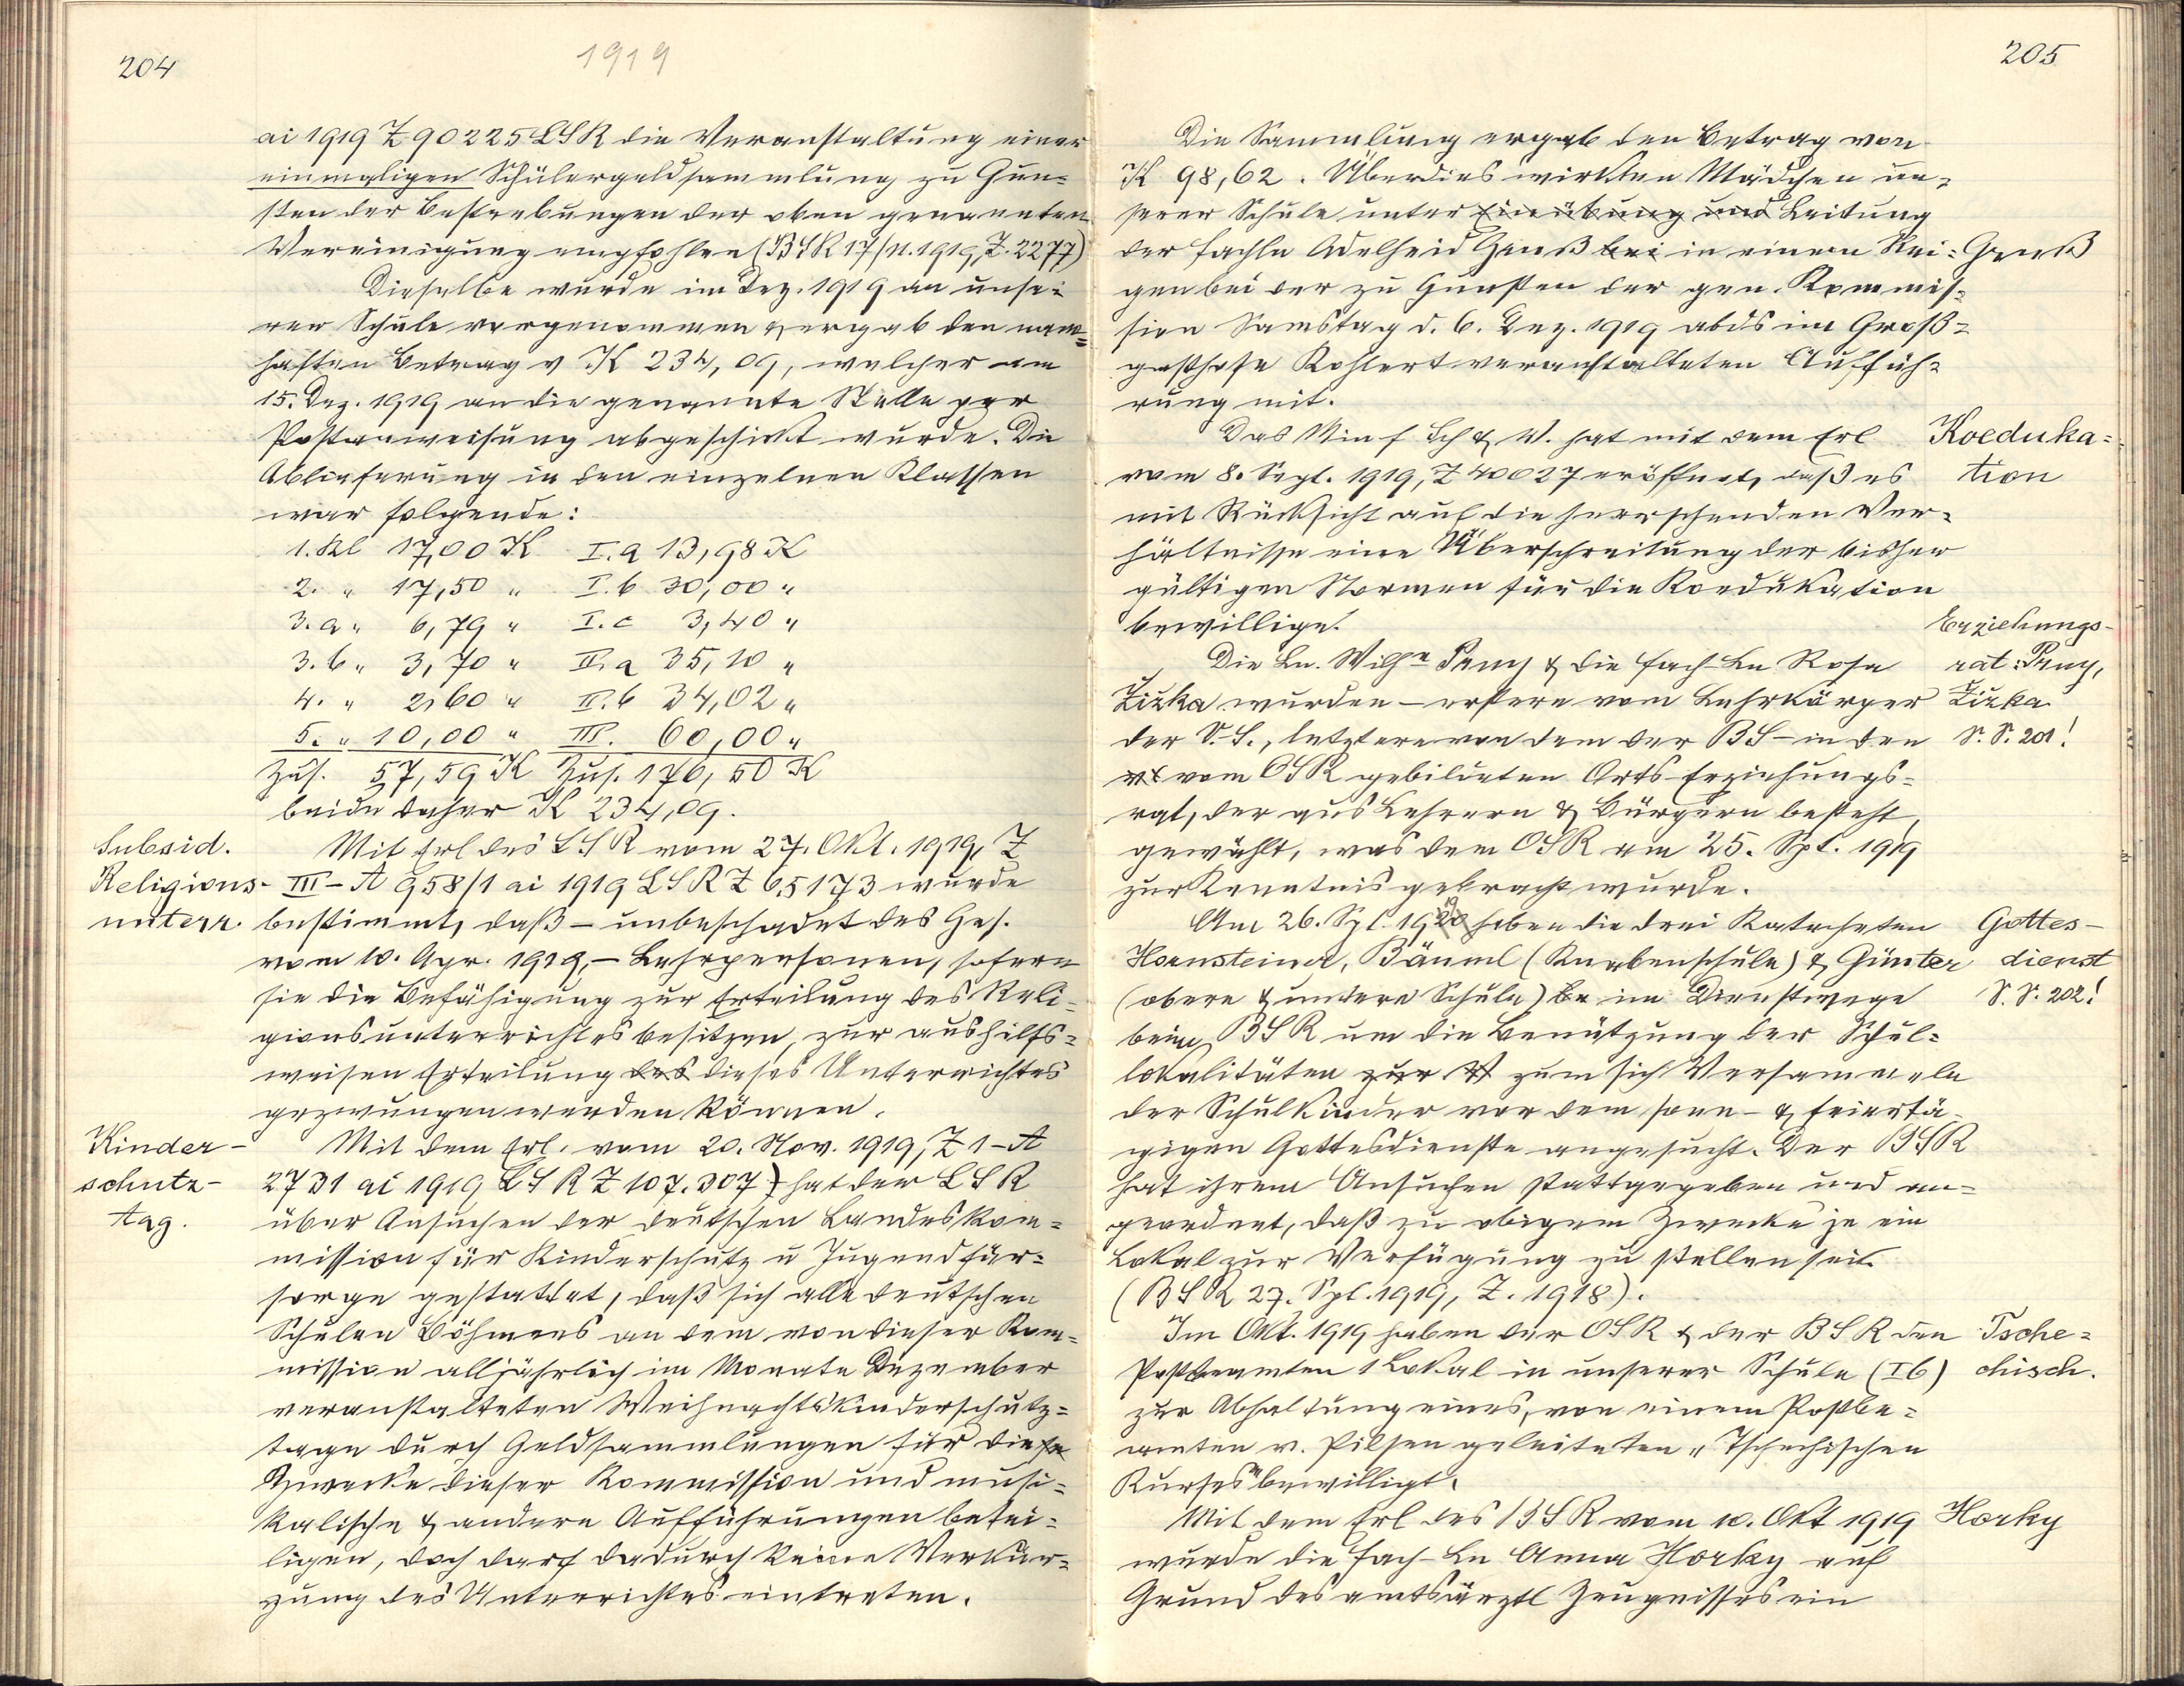 204
1919
ai 1919 Z 90225 LSR die Veranstaltung einer
einmaligen Schülergeldsammlung zu Gun=
sten der Bestrebungen der oben genannten
Vereinigung empfohlen (BSR 17/11. 1919, Z. 2277)
Dieselbe wurde im Dez. 1919 an unse=
rer Schule vorgenommen & ergab den nam=
haften Betrag v K 234,09, welcher am
15. Dez. 1919 an die genannte Stelle per
Postanweisung abgeschickt wurde. Die
Ablieferung in den einzelnen Klassen
war folgende:
1. Kl 17,00 K I. a 13,98 K
2. „ 17,50 „ I. b 30,00 „
3. a „ 6,79 „ I. c 3,40 „
3. b „ 3,70 „ II. a 35,10 „
4. „ 2,60 „ II. b 34,02 „
5. „ 10,00 „ III. 60,00 „
Zus. 57,59 K Zus. 176,50 K
beide daher K 234,09.
Subsid.
Religions-
unterr.
Mit Erl des LSR vom 27. Okt. 1919, Z
III-A 958/1 ai 1919 LSR Z 65173 wurde
bestimmt, daß – unbeschadet des Ges.
vom 10. Apr. 1919, – Lehrpersonen, sofern
sie die Befähigung zur Erteilung des Reli-
gionsunterrichtes besitzen, zur aushilfs=
weisen Erteilung des dieses Unterrichtes
gezwungen werden können.
Kinder-
schutz-
tag.
Mit dem Erl. vom 20. Nov. 1919, Z 1-A
2731 ai 1919 LSR Z 107.307) hat der LSR
über Ansuchen der deutschen Landeskom=
mission für Kinderschutz u Jugendfür=
sorge gestattet, daß sich alle deutschen
Schulen Böhmens an dem von dieser Kom=
mission alljährlich im Monate Dezember
veranstalteten Weihnachtskinderschutz=
tage durch Geldsammlungen für diese
Zwecke dieser Kommission und musi=
kalische & andere Aufführungen betei=
ligen, doch darf dadurch keine Verkür=
zung des Unterrichtes eintreten.
205
Die Sammlung ergab den Betrag von
K 98,62. Überdies wirkten Mädchen un=
serer Schule unter Einübung und Leitung
der Fachln Adelheid Gruß bei in einem Rei=
Gruß
gen bei der zu Gunsten der gen. Kommis=
sion Samstag d. 6. Dez. 1919 abds im Groß=
gasthofe Kohlert veranstalteten Auffüh=
rung mit.
Das Min f Sch & U. hat mit dem Erl
Koeduka=
tion
vom 8. Sept. 1919, Z 40027 eröffnet, daß es
mit Rücksicht auf die herrschenden Ver=
hältnisse eine Überschreitung der bisher
gültigen Normen für die Koedukation
bewillige.
Erziehungs-
rat: Prny,
Žižka
S. S. 201!
Die Ln. Wilhe Prny & die Fach-Ln Rosa
Žižka wurden – erstere vom Lehrkörper
der V. S., letztere von dem der BS – in den
vom OSR gebildeten Orts-Erziehungs=
rat, der aus Lehrern & Bürgern besteht,
gewählt, was dem OSR am 25. Spt. 1919
zur Kenntnis gebracht wurde.
Am 26. Spt. 1919 haben die drei Katecheten
Gottes-
dienst
S. S. 202!
Hornsteiner, Bäuml (Knabenschule) & Günter
(obere & untere Schule) be im Dienstwege
beim BSR um die Benützung der Schul=
lokalitäten zur V zum sich Versammeln
der Schulkinder vor dem sonn- & feiertä-
gigen Gottesdienste angesucht. Der BSR
hat ihrem Ansuchen stattgegeben und an=
geordnet, daß zu obigem Zwecke je ein
Lokal zur Verfügung zu stellen sei.
(BSR 27. Spt. 1919, Z. 1918).
Im Okt. 1919 haben der OSR & der BSR den
Tsche=
chisch.
Postbeamten 1 Lokal in unserer Schule (Ib)
zur Abhaltung eines, von einem Postbe=
amten v. Pilsen geleiteten „Tschechischen
Kurses" bewilligt.
Mit dem Erl des BSR vom 10. Okt 1919
Horky
wurde die Fach-Ln Anna Horky auf
Grund des amtsärztl Zeugnisses ein